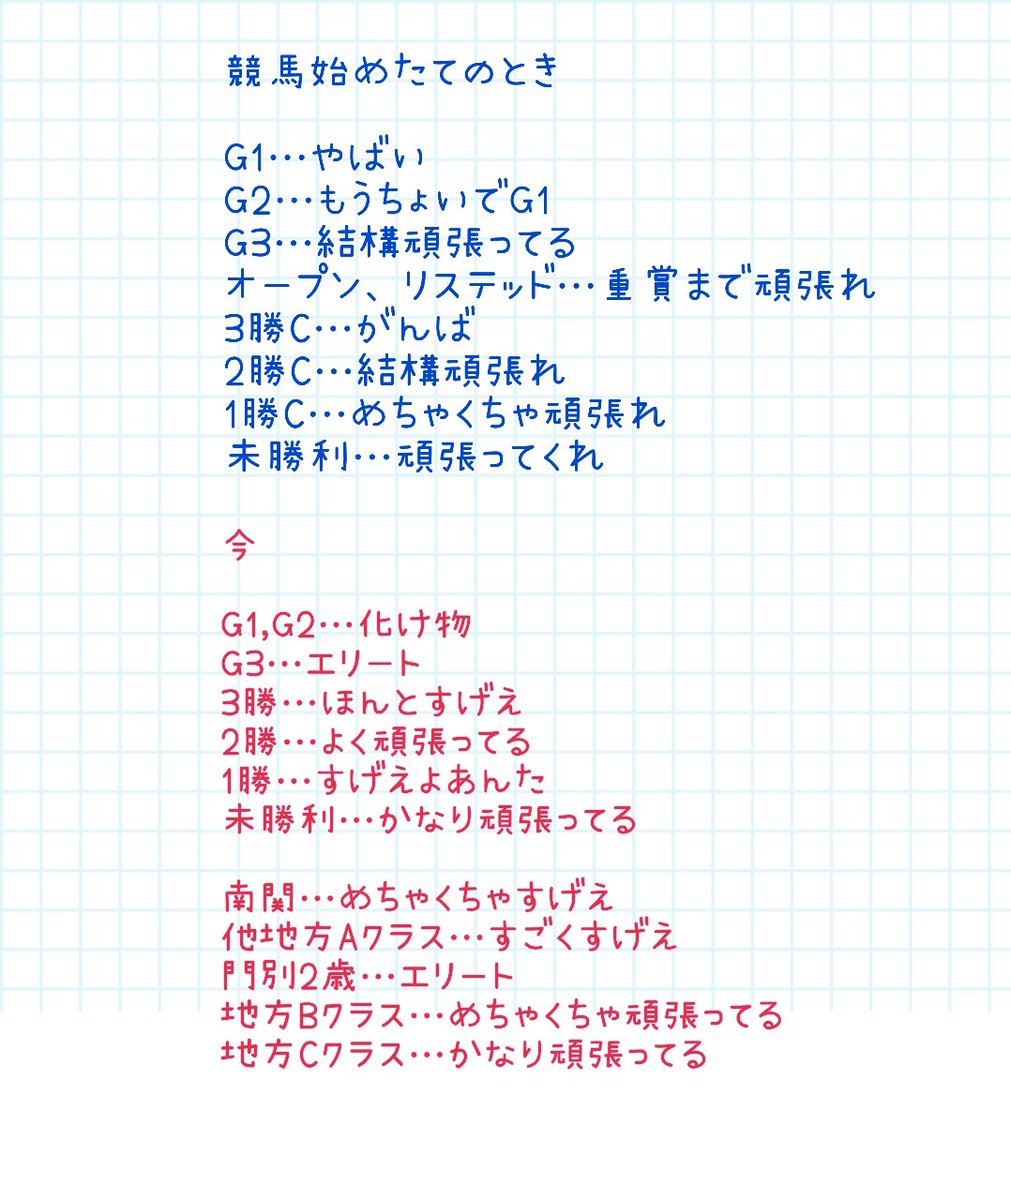 競馬始めたてのとき
G1…やばい
G2…もうちょいでG1
G3…結構頑張ってる
オープン、リステッド…重賞まで頑張れ
3勝C…がんば
2勝C…結構頑張れ
1勝C…めちゃくちゃ頑張れ
未勝利…頑張ってくれ
今
G1,G2…化け物
G3…エリート
3勝…ほんとすげえ
2勝…よく頑張ってる
1勝…すげえよあんた
未勝利…かなり頑張ってる
南関…めちゃくちゃすげえ
他地方Aクラス…すごくすげえ
門別2歳…エリート
地方Bクラス…めちゃくちゃ頑張ってる
地方Cクラス…かなり頑張ってる